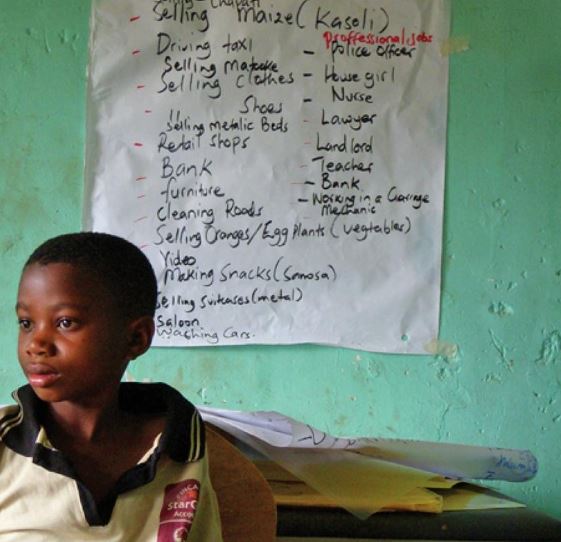 Selling Maize (Kasoli)
Driving taxi
Selling Matooke
Selling Clothes
" Shoes
Selling metalic Beds
Retail shops
Bank
furniture
cleaning Roads
Selling Oranges/Egg Plants (vegtables)
Video
Making Snacks (Samosa)
Selling Suitcases (metal)
Saloon
Washing Cars.
Proffessional jobs
- Police Officer
- House girl
- Nurse
- Lawyer
- Landlord
- Teacher
- Bank
- Working in a Garage
Mechanic